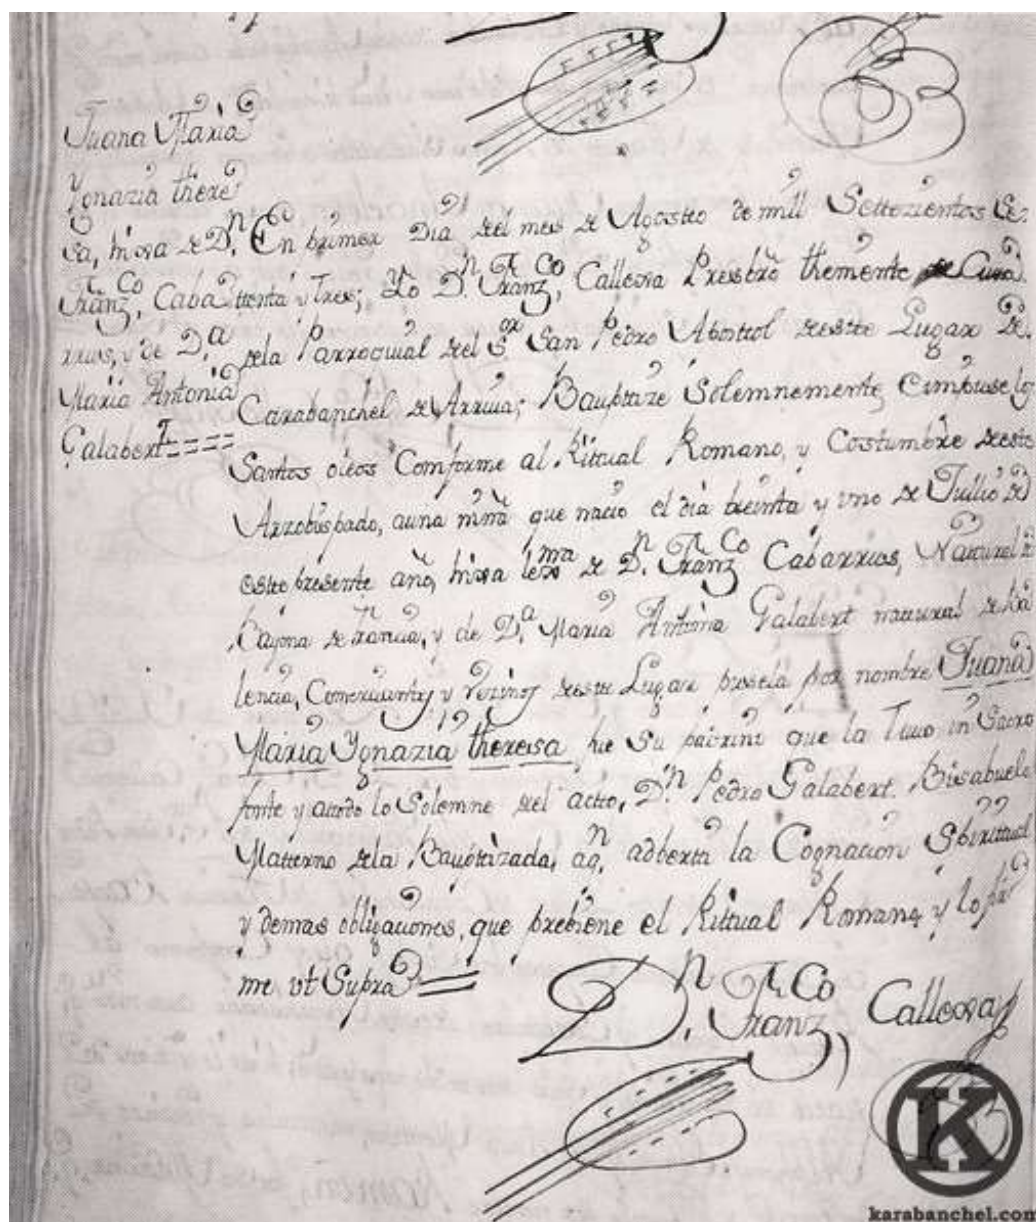 Juana Maria
Ygnazia there
sa, hixa de D.n
Franz.co Caba
rrus, y de D.a
Maria Antonia
Galabert ====
En primer Dia del mes de Agosto de mill Settezientos Se
ttenta y Tres; Yo D.n Franz.co Calleja Presbro theniente de Cura
dela Parroquial del S.or San Pedro Apostol deeste Lugar De
Carabanchel de Arriva; Bauptize Solemnemente, e impuse los
Santos oleos Comforme al Rittual Romano, y Costumbre deeste
Arzobispado, auna niña que nacio el dia treinta y uno de Jullio de
este presente año, hixa lexma de D.n Franz.co Cabarrus, Natural de
Bayona de francia, y de D.a Maria Antonia Galabert natural deVa
lencia, Comerciantes y vezinos deeste Lugar pusela por nombre Juana
Maria Ygnazia theresa fue Su padrino que la Tuvo in Sacro
fonte y atodo lo Solemne del acto, D.n Pedro Galabert. Bisabuelo
Matterno dela Bauptizada, aq.n adberti la Cognacion Spirittual
y demas obligaciones, que prebiene el Rittual Romano, y lo fir
me vt Supra =
D.n Franz.co Calleja
K
karabanchel.com